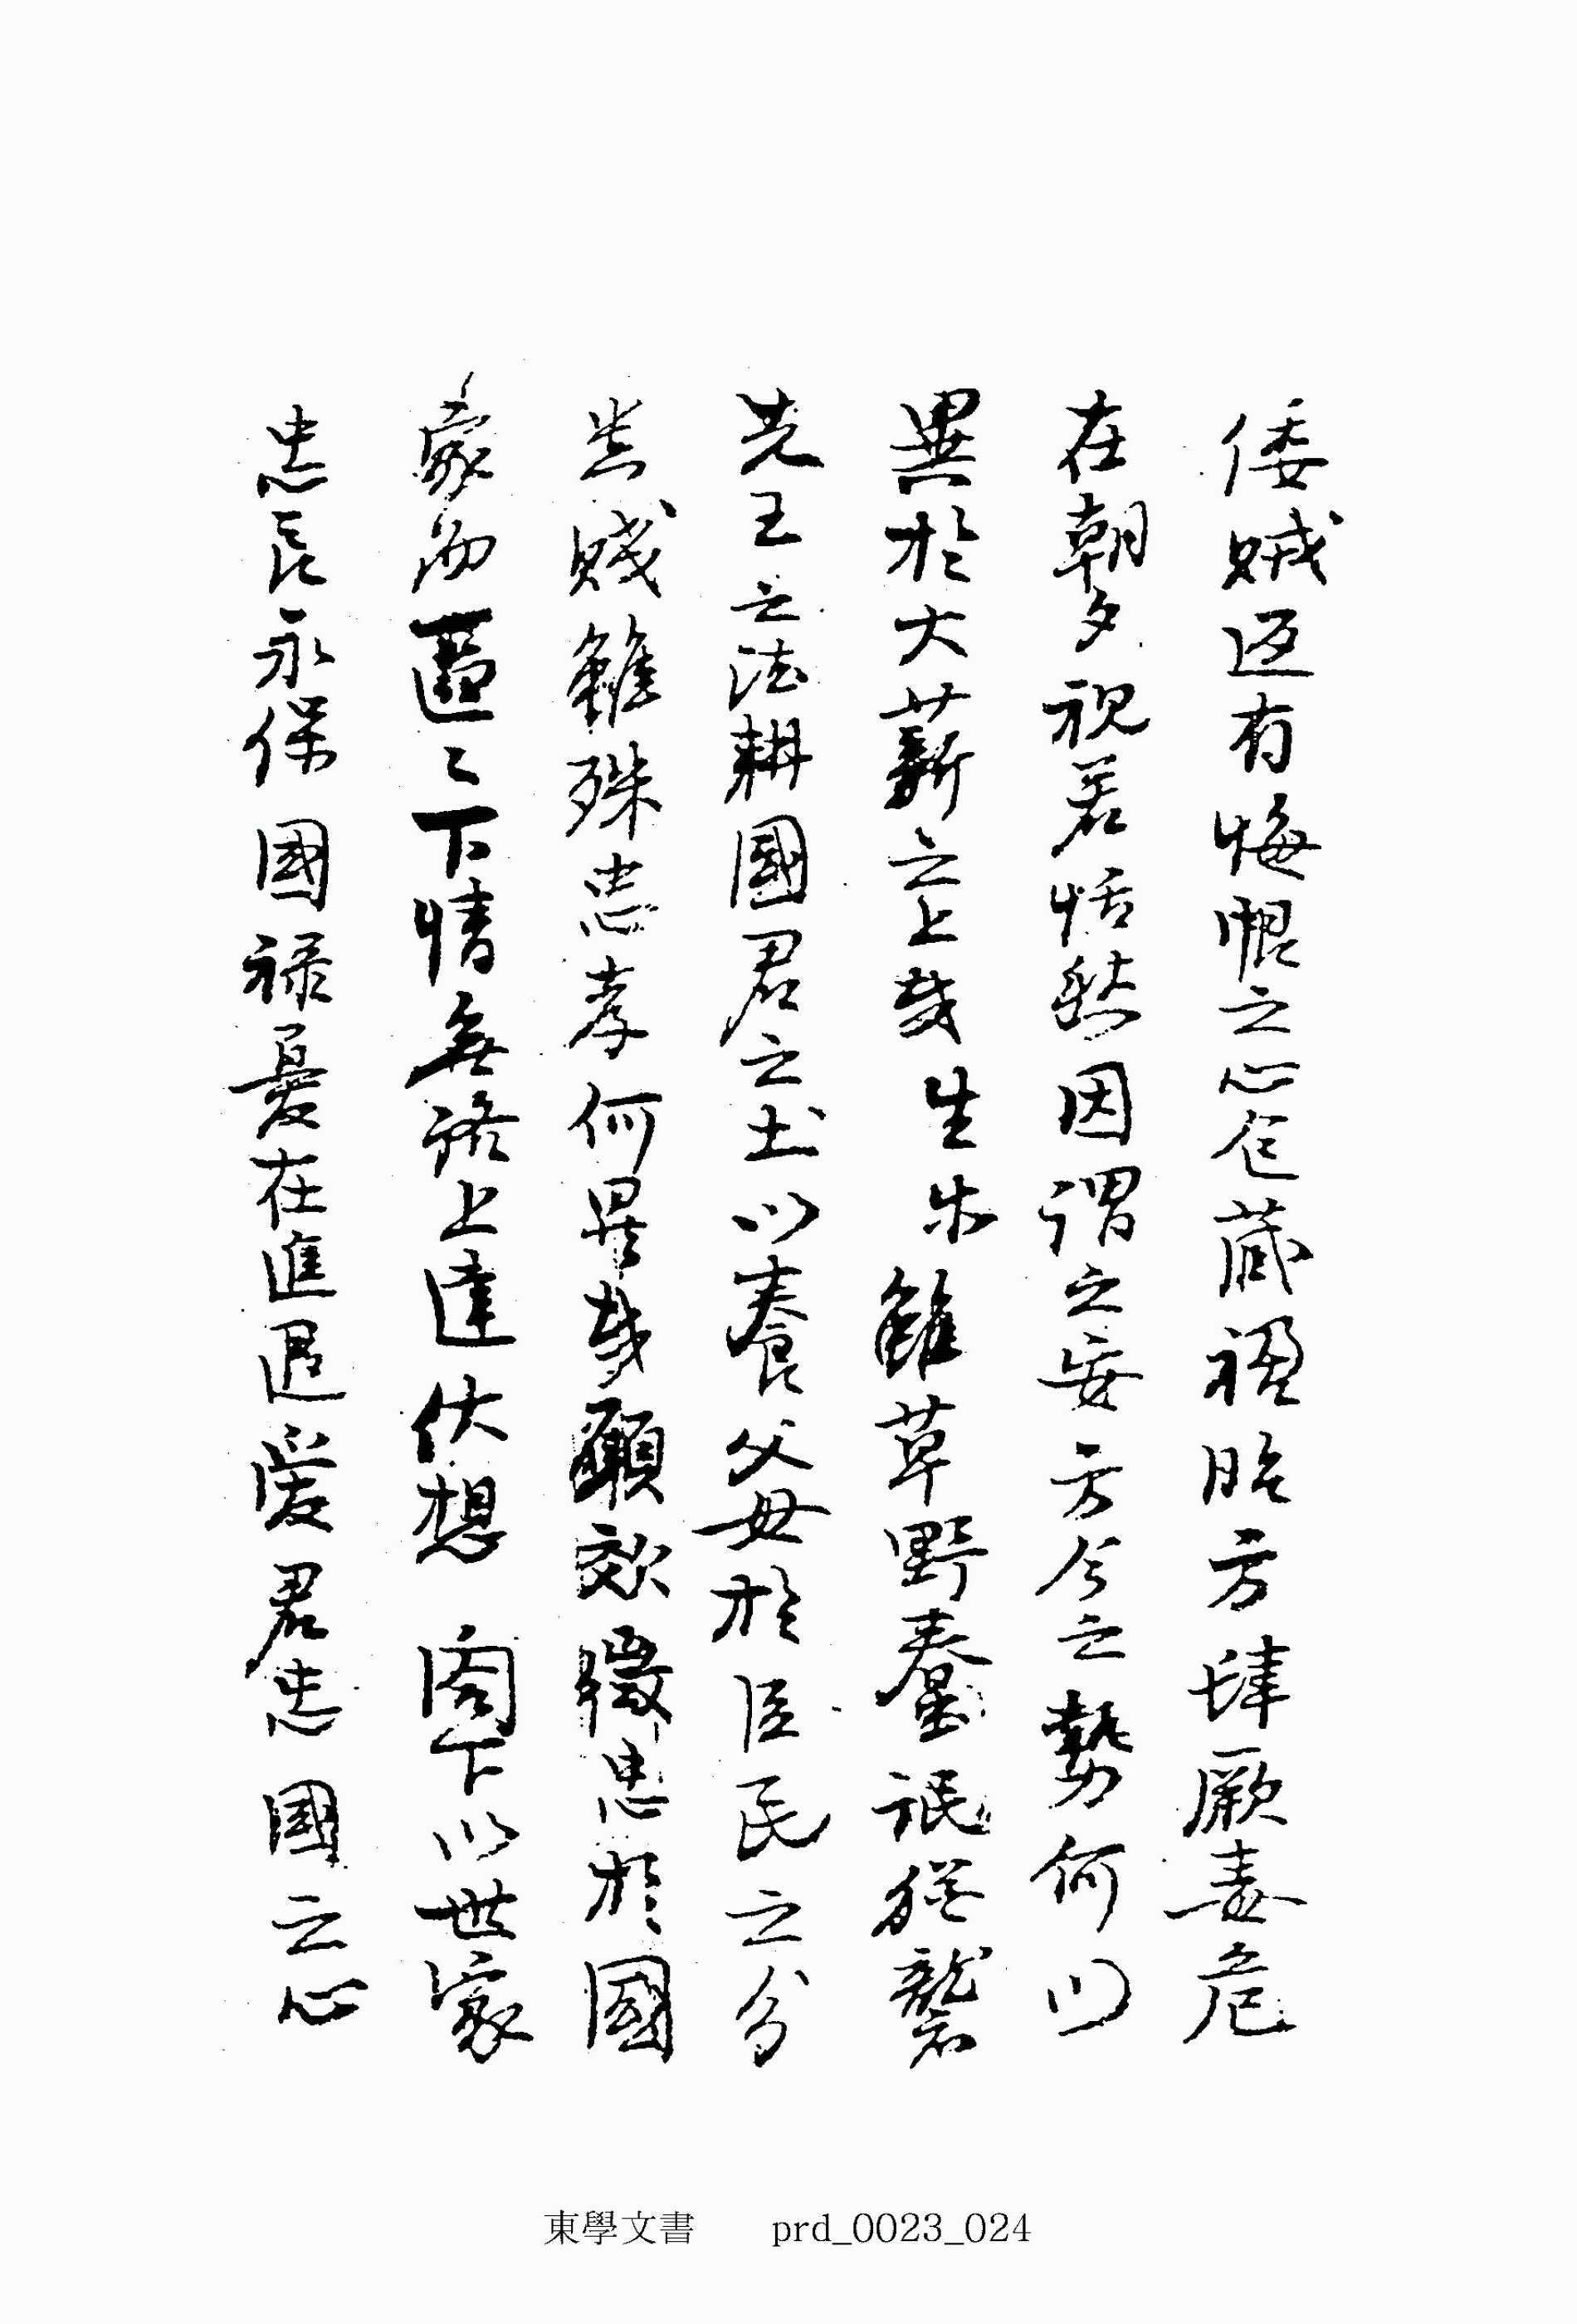 倭賊返有悔恨之心包藏禍胎方肆厥毒危
在朝夕視若恬然因謂之安方今之勢何以
異於大薪之上哉生等雖草野蠢氓猶襲
先王之法耕國君之土以養父母於臣民之分
貴賤雖殊忠孝何異哉願效微忠於國
家而區〻下情無路上達伏想 閤下以世家
忠良永保國祿憂在進退愛君忠國之心
東學文書 prd_0023_024